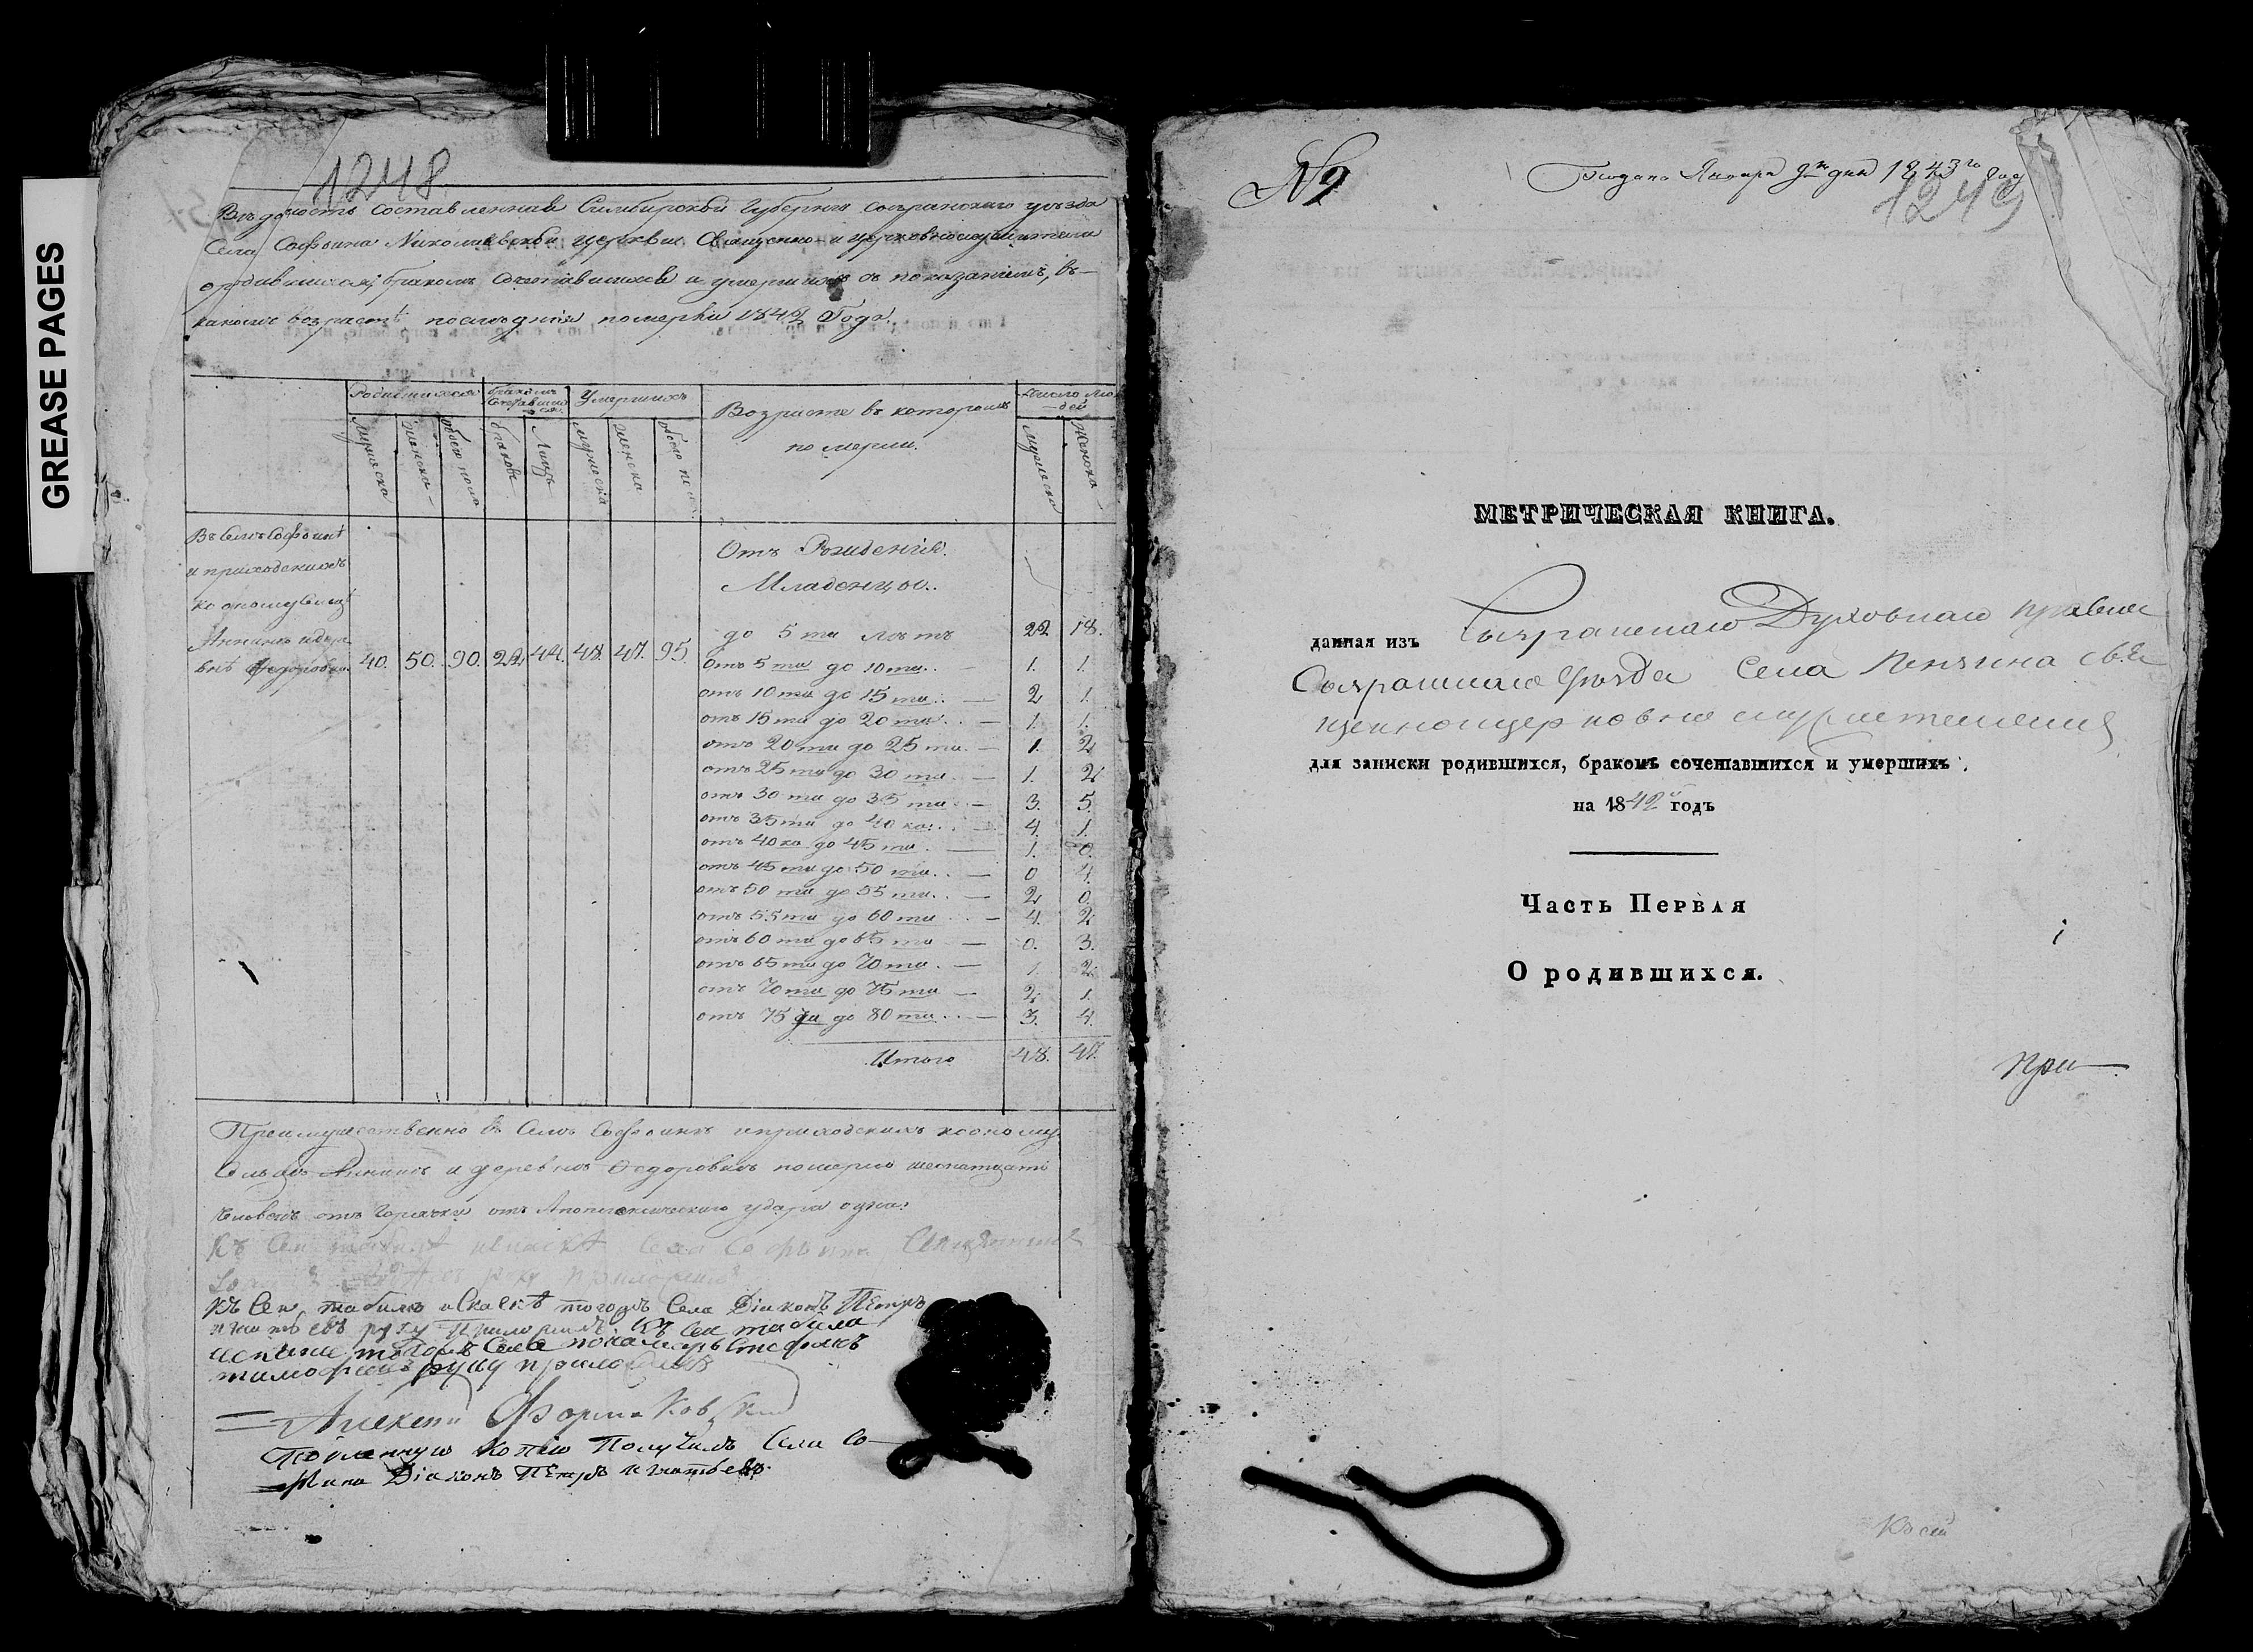 GREASE PAGES
1248
Вѣдомость составленная Симбирской Губерніи Сызранскаго уѣзда
Села Софьина Николаевской церкви Священно и церковнослужителями
о родившихся, бракомъ сочетавшихся и умершихъ съ показаніемъ, въ-
какомъ возрастѣ послѣдніе померли 1842 Года.
Родившихся
бракомъ сочетавшихся
Умершихъ
Возрастъ въ которомъ
померли.
Число лю-
дей
мужеска
женска
обоего пола
браковъ
Лицъ
мужеска
женска
обоего пола
мужеска
женска
Въ Селѣ Софьинѣ
и приходскихъ
ко оному Сельцѣ
Аннинѣ и дере
внѣ Федоровкѣ 40. 50. 90. 22. 44. 48. 47. 95.
Отъ Рожденія.
Младенцы..
до 5ти лѣтъ 22 18.
Отъ 5ти до 10ти.. 1. 1.
отъ 10ти до 15ти.. — 2 1.
отъ 15ти до 20ти.. — 1. 1.
отъ 20ти до 25ти. — 1. 2
отъ 25ти до 30ти. — 1. 2
отъ 30ти до 35ти.. — 3. 5.
отъ 35ти до 40ка.. — 4. 1.
отъ 40ка до 45ти. — 1. 0.
отъ 45ти до 50ти.. — 0 4.
отъ 50ти до 55ти.. — 2 0.
отъ 55ти до 60ти.. — 4. 2
отъ 60ти до 65ти — 0. 3.
отъ 65ти до 70ти. — 1. 2.
отъ 70ти до 75ти — 2. 1.
отъ 75ти до 80ти.. — 3. 4.
Итого 48. 47.
Преимущественно въ Селѣ Софьинѣ и приходскихъ ко оному
Сельцѣ Аннинѣ и деревнѣ Федоровкѣ померло шеснатцать
человекъ отъ Горячки отъ Апоплексическаго удара одна.
Къ Сей Села Софьина Священникъ
руку приложилъ
Къ Сей табели и Скаскѣ тогожъ Села Діаконъ Петръ
Игнатьевъ руку приложилъ. Къ Сей табели
и Скаске тогожъ Села пономарь Стефанъ
тимофеевъ руку приложилъ
Алексей
Копію Получилъ Села Со-
фьина Діаконъ Петръ Игнатьевъ.
№ 9
Подана Января 9го дня 1843го года
1249
МЕТРИЧЕСКАЯ КНИГА.
данная изъ Сызранскаго Духовнаго правле
Сызранскаго Уѣзда Села Кензина Свя
щенноцерковнослужителямъ
для записки родившихся, бракомъ сочетавшихся и умершихъ.
на 1842й годъ
Часть Первая
О родившихся.
при—
Къ сей